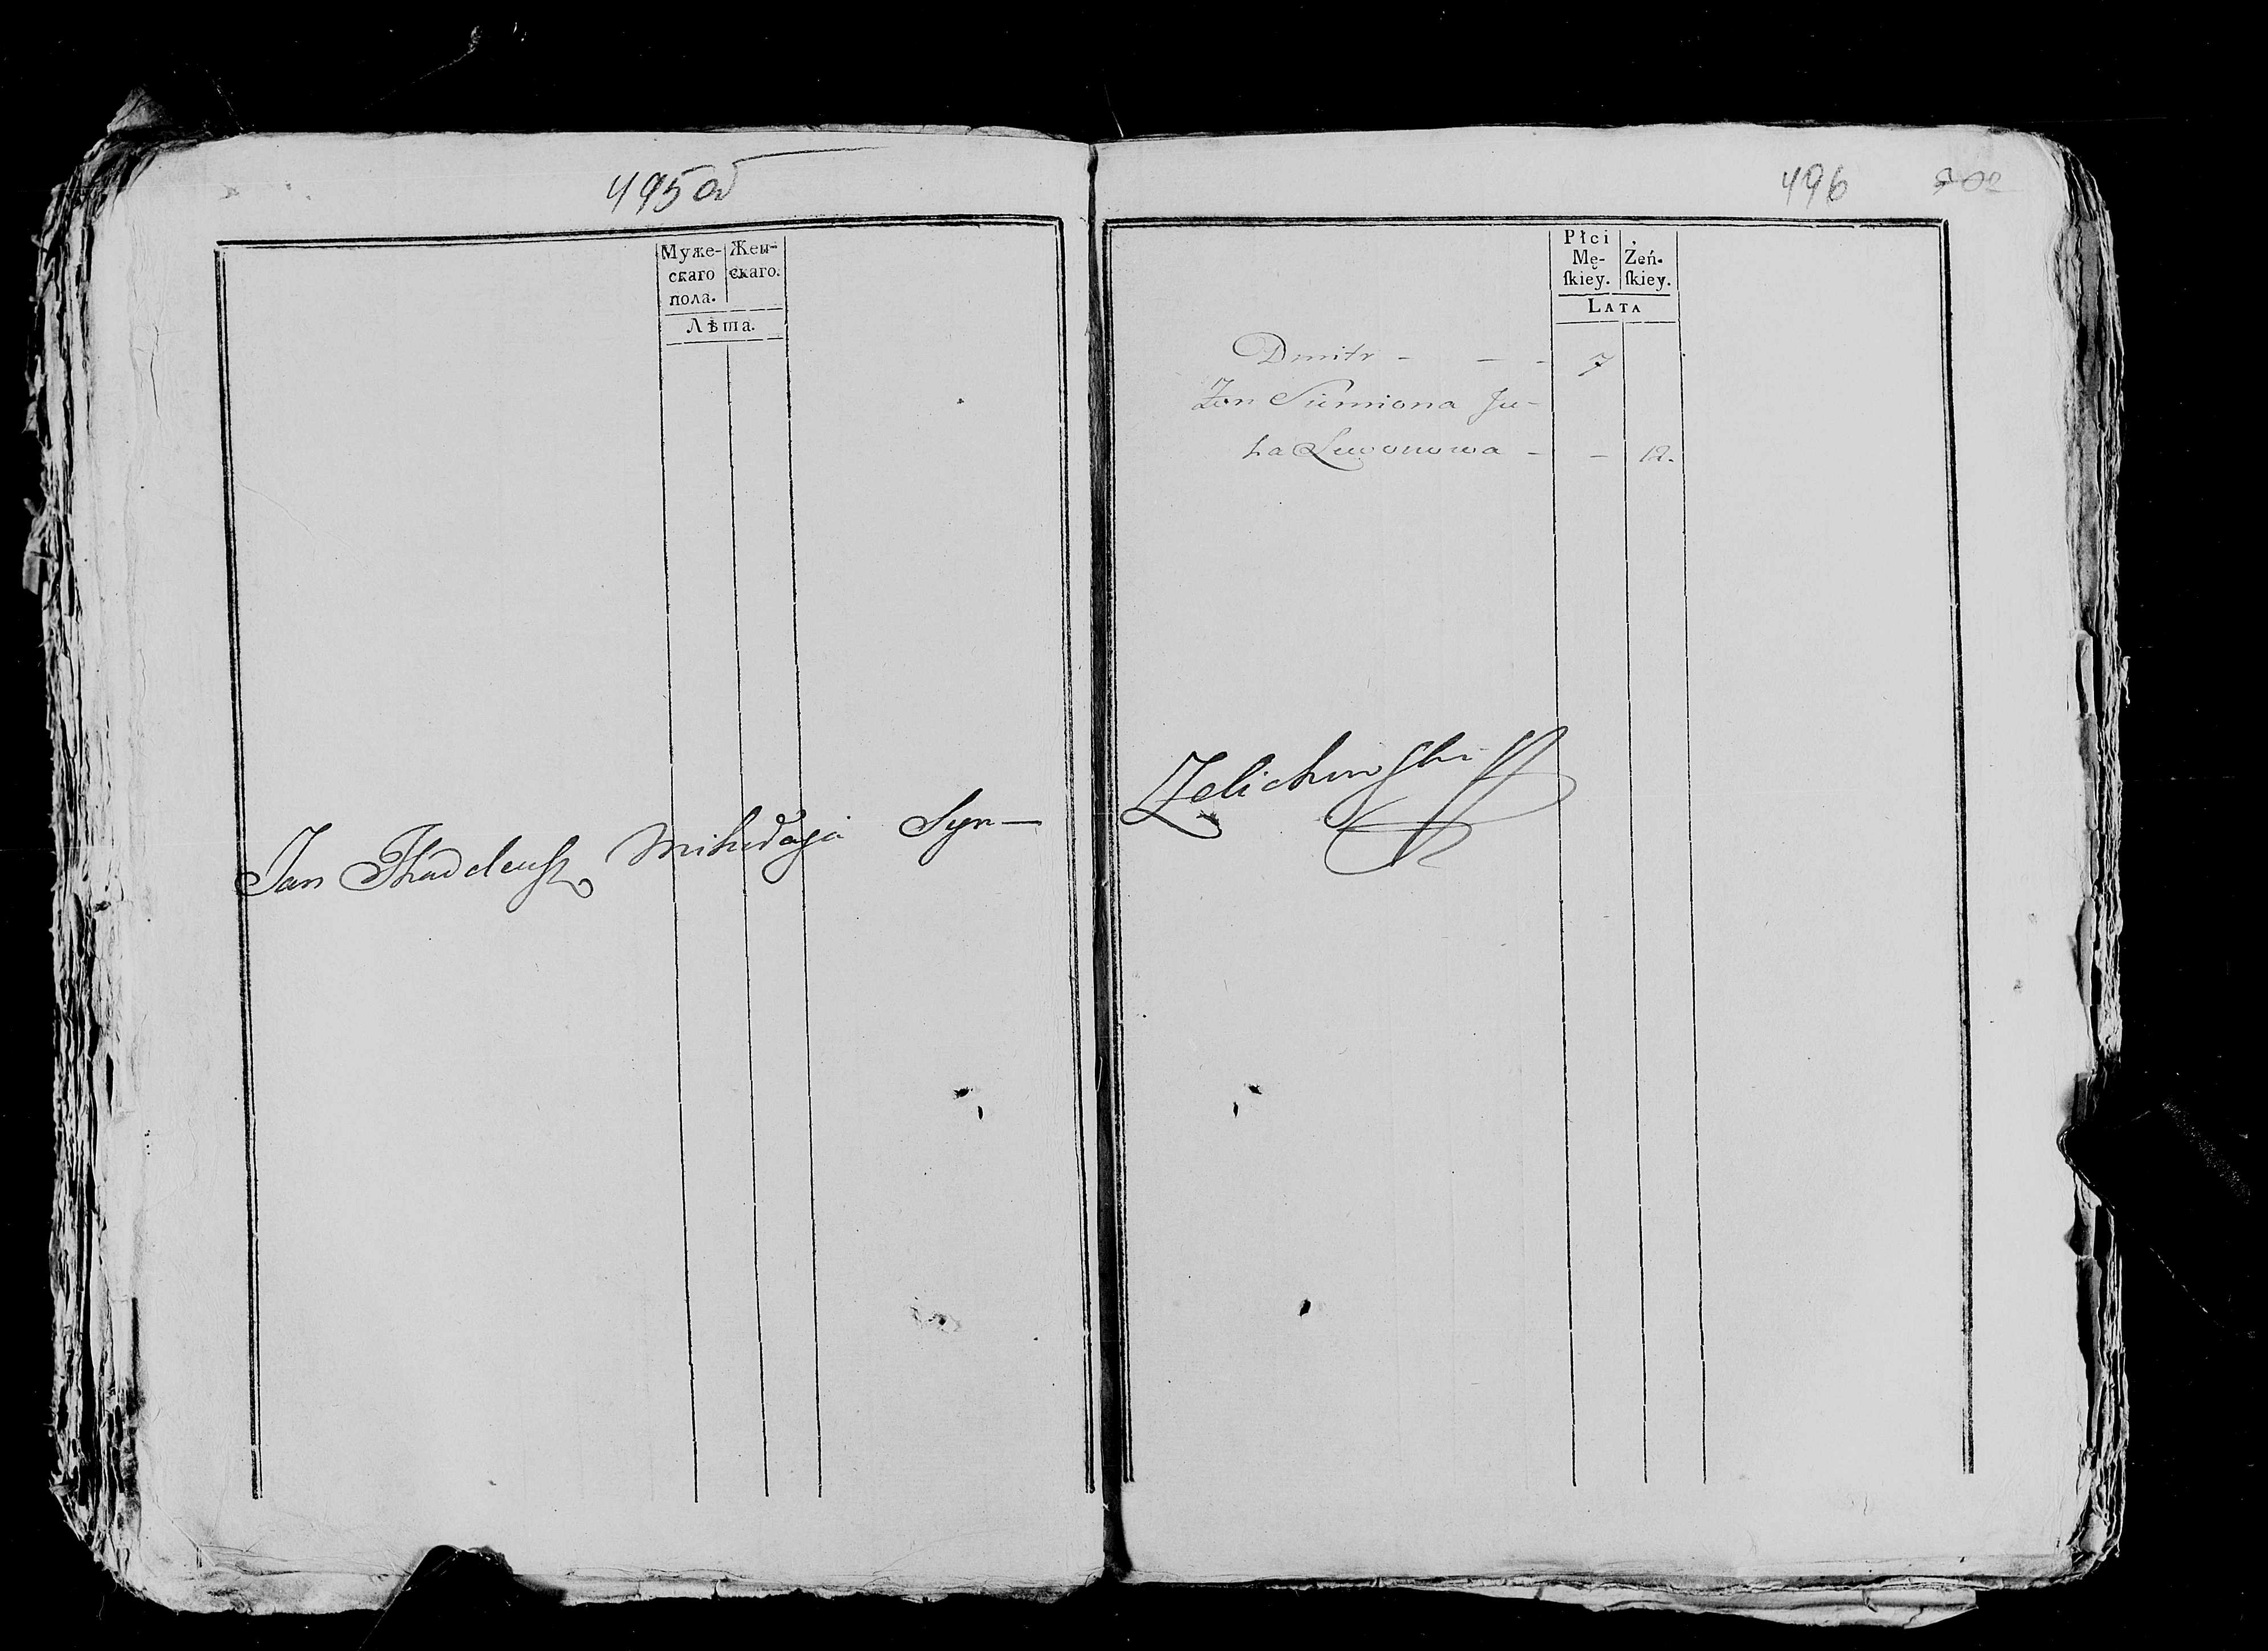 495 об
Муже-
скаго
пола.
Жен-
скаго.
Лѣта.
Jan Thadeusz Mikołaja Syn —
496
Płci
Mę-
ſkiey.
Żeń-
ſkiey.
LATA
Dmitr - - - 7
Zon Siemiona Ju-
ha Lewonowa - - 12.